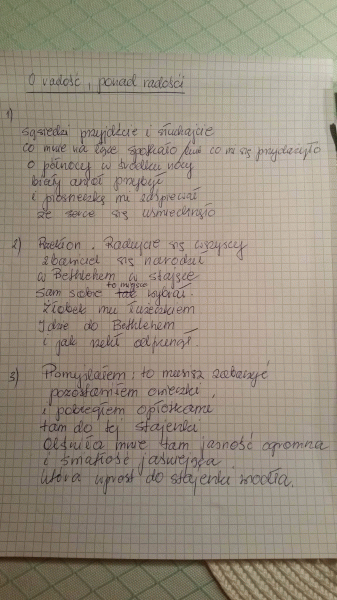 O radość, ponad radości
1)
sąsiedzi przyjdźcie i słuchajcie
co mnie na łące spotkało co mi się przydarzyło
o północy w środku nocy
biały anioł przybył
i pioseneczkę mi zaśpiewał
że serce się uśmiechnęło
2) Rzekłon. Radujcie się wszyscy
zbawiciel się narodził
w Bethlehem w stajце
sam sobie to miejsce wybrał.
Żłobek mu łóżeczkiem
Idźcie do Bethlehem
i jak rzekł odfrunął.
3) Pomyślałem: to muszę zobaczyć
pozostawiłem owieczki,
i pobiegłem opłotkami
tam do tej stajenki
Olśniła mnie tam jasność ogromna
i światłość jaśniejąca
która wprost do stajenki wiodła.